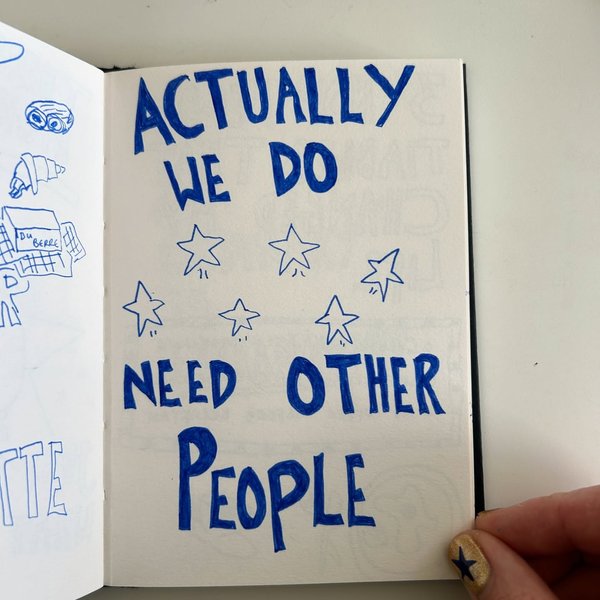 ACTUALLY
WE DO
NEED OTHER
PEOPLE
DU
BERRE
TTE